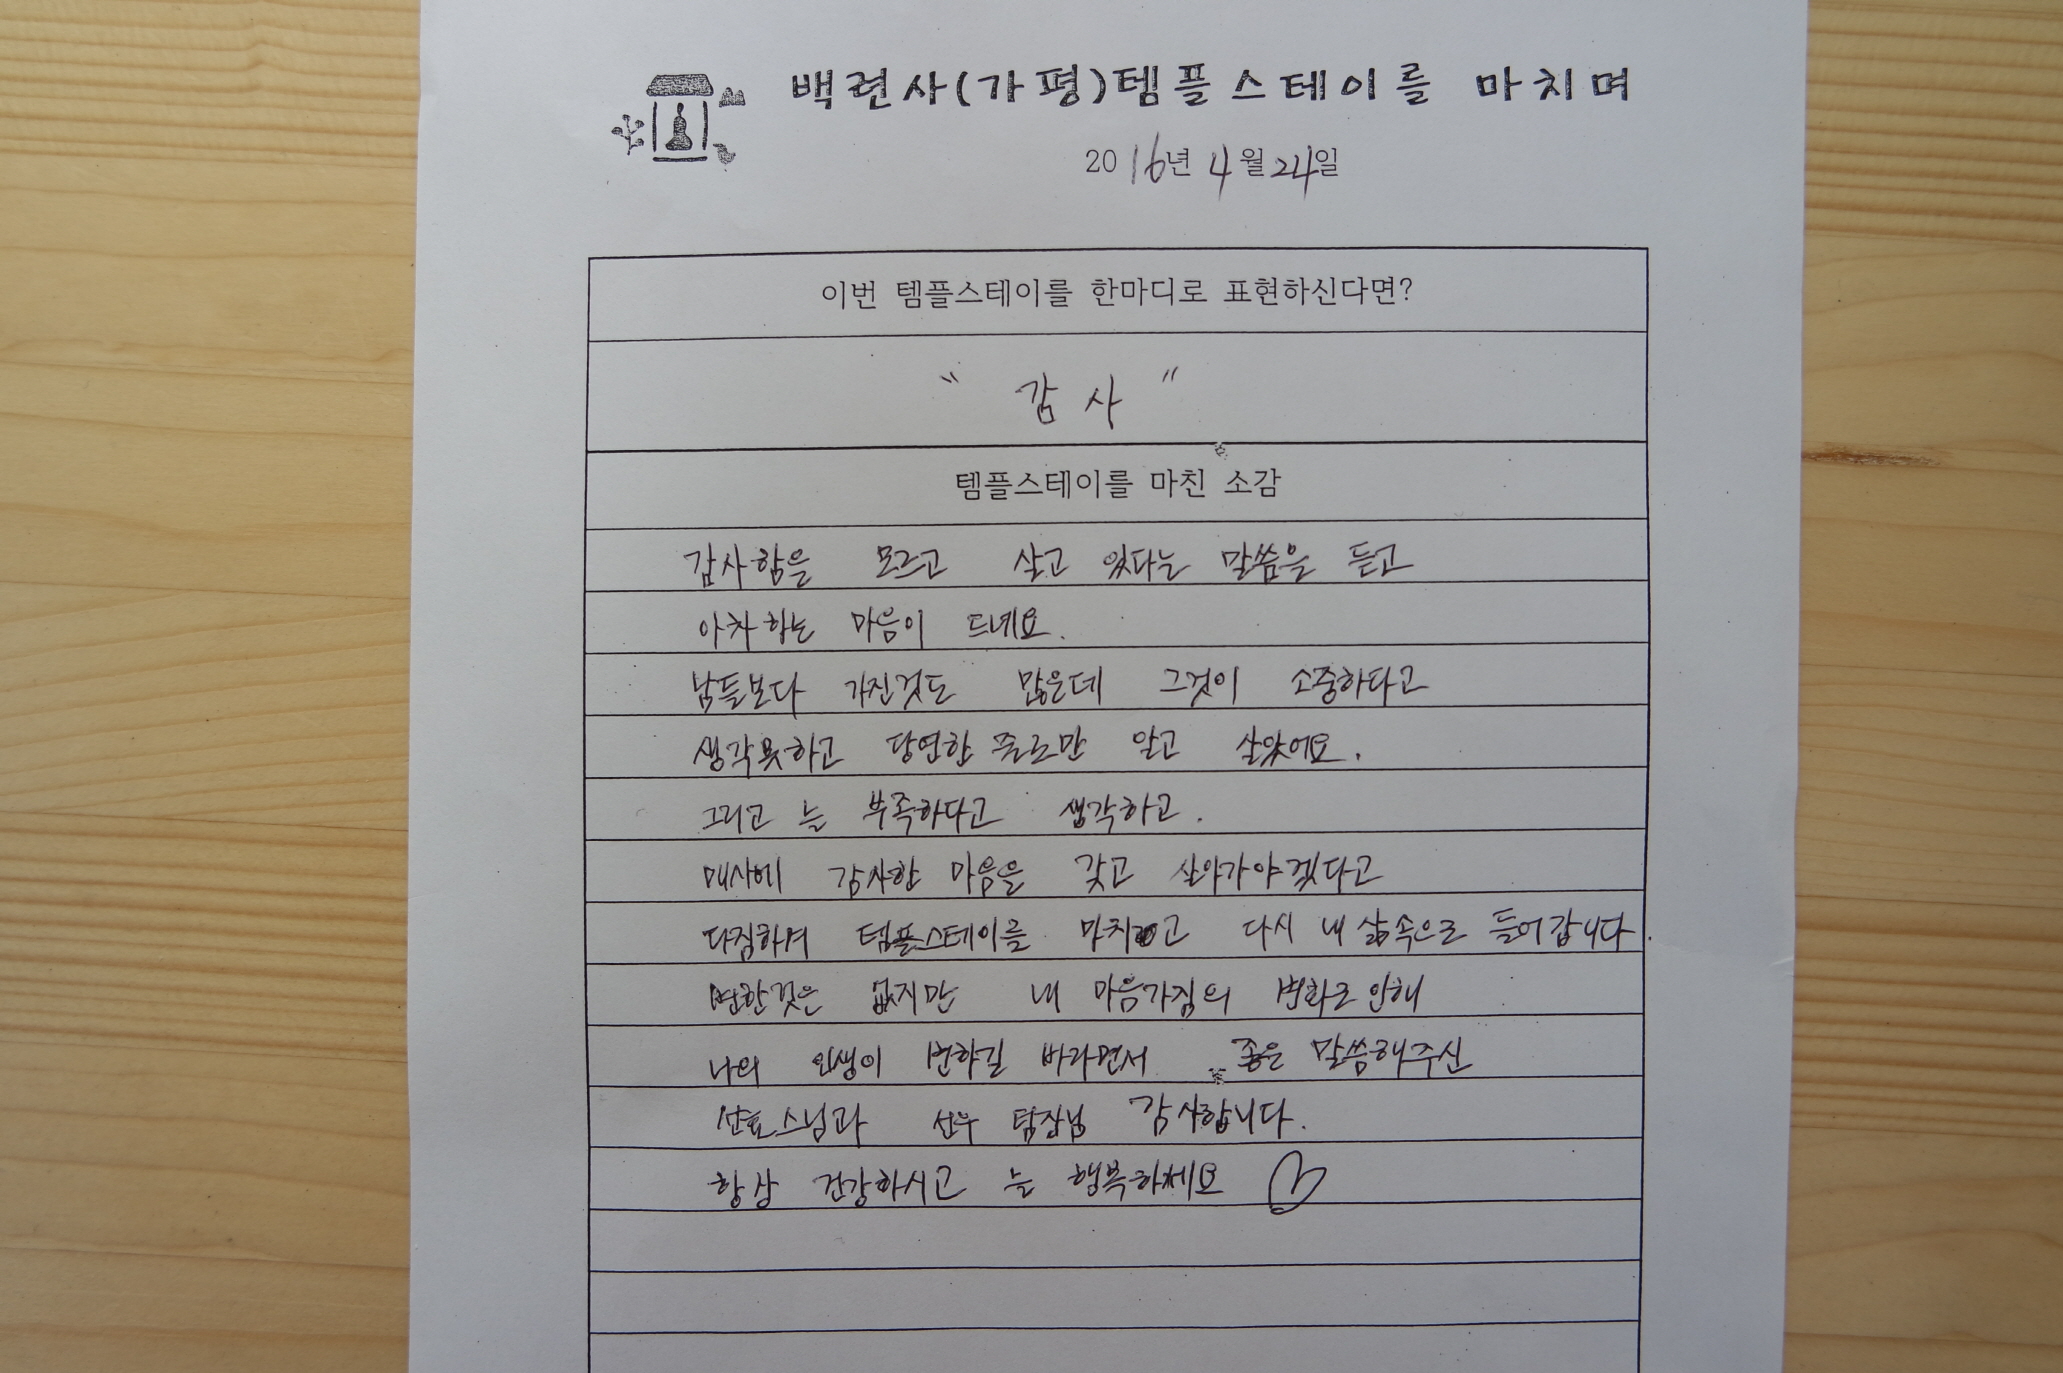 백련사(가평)템플스테이를 마치며
2016년 4월 24일
이번 템플스테이를 한마디로 표현하신다면?
"감사"
템플스테이를 마친 소감
감사함을 모르고 살고 있다는 말씀을 듣고
아차하는 마음이 드네요.
남들보다 가진것도 많은데 그것이 소중하다고
생각못하고 당연한 줄로만 알고 살았어요.
그리고 늘 부족하다고 생각하고.
매사에 감사한 마음을 갖고 살아가야겠다고
다짐하며 템플스테이를 마치고 다시 내 삶속으로 들어갑니다.
변한것은 없지만 내 마음가짐의 변화로 인해
나의 인생이 변하길 바라면서 좋은 말씀해주신
스님과 선우 팀장님 감사합니다.
항상 건강하시고 늘 행복하세요